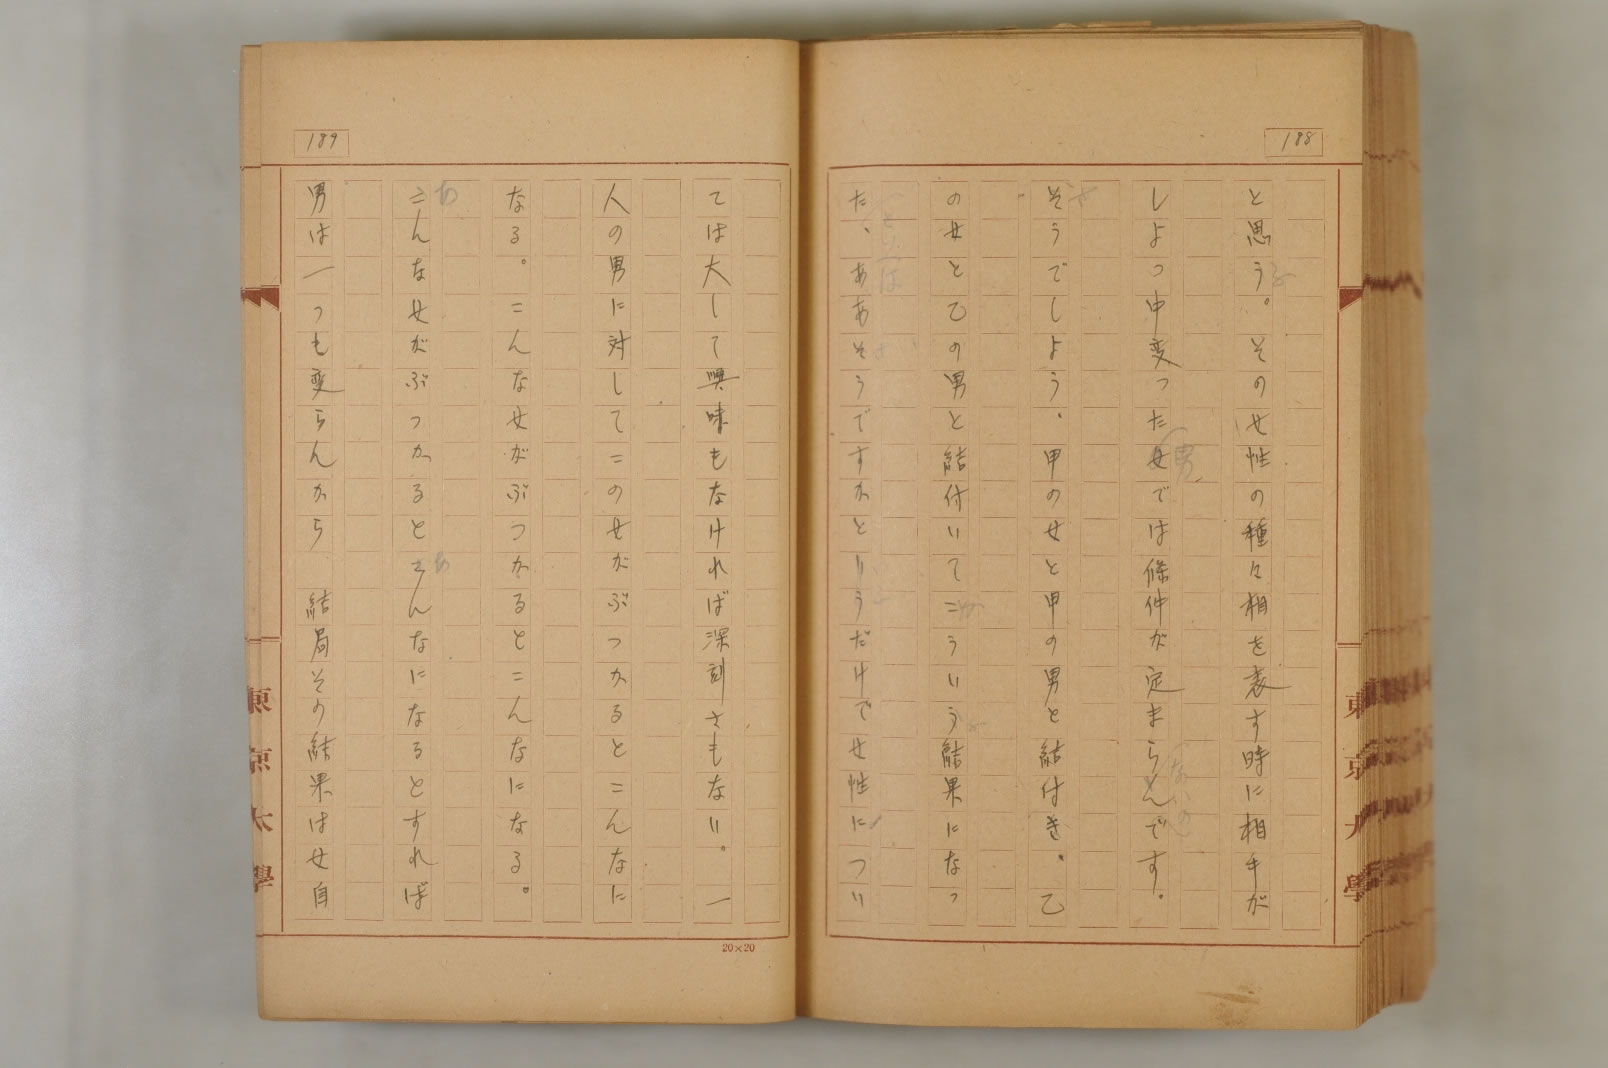 188
と思う。その女性の種々相を表す時に相手が
しよつ中変った女では條件が定まらんです。
そうでしよう、甲の女と甲の男と結付き、乙
の女と乙の男と結付いてこういう結果になっ
た、ああそうですかというだけで女性につい
189
ては大して興味もなければ深刻さもない。一
人の男に対してこの女がぶつかるとこんなに
なる。こんな女がぶつかるとこんなになる。
こんな女がぶつかるとこんなになるとすれば
男は一つも変らんから 結局その結果は女自
ふ
男
ない
さ
といへば
あ
あ
20×20
東京大學
東京大學